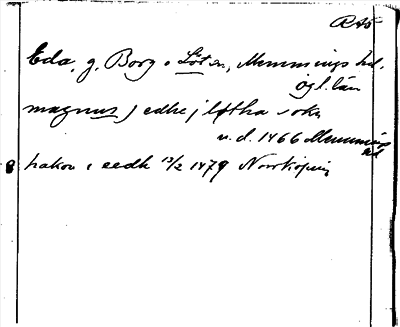 RAÖ
Eda, g. Borg o Löt sn, Memmings hd,
ögl. län
magnus j edhe j løtha sokn
u.d. 1466 Memmings
hd
hakon i eedh 13/2 1479 Norrköping